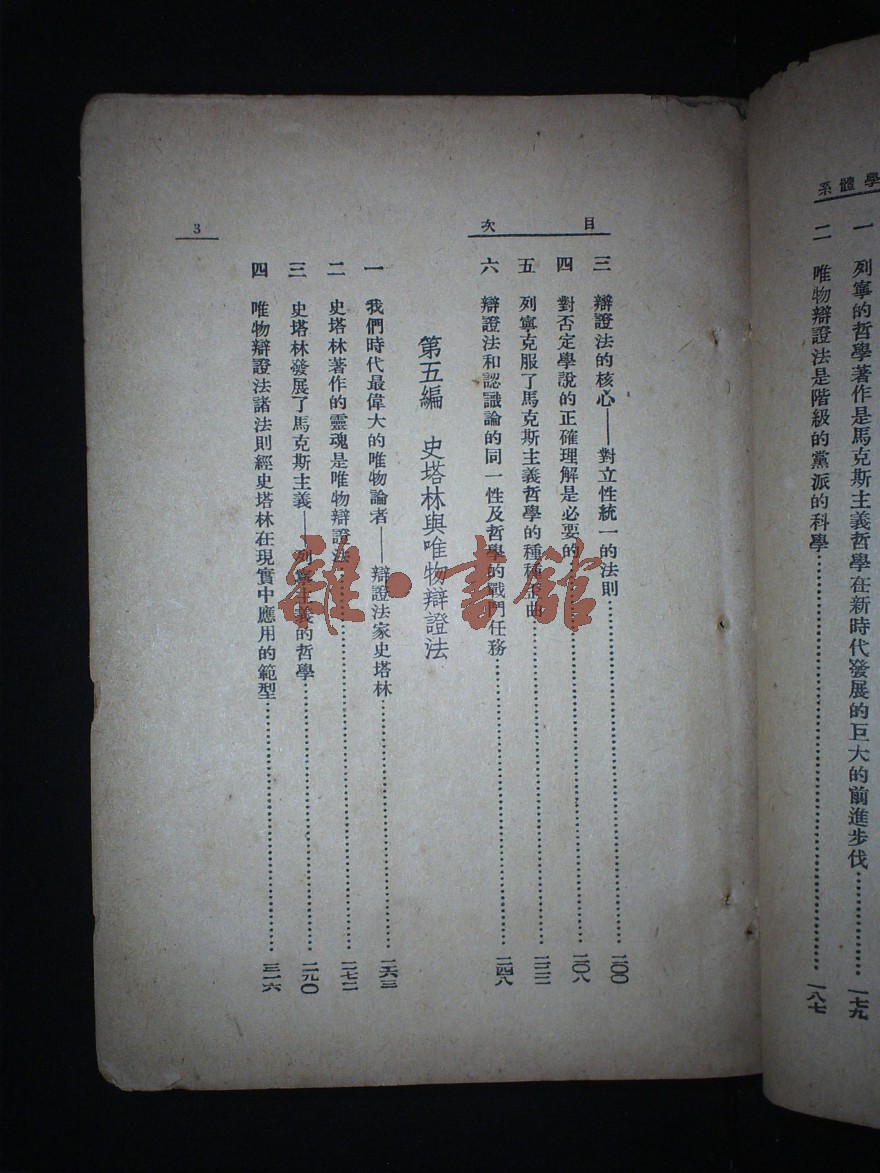 學體系
一 列寧的哲學著作是馬克斯主義哲學在新時代發展的巨大的前進步伐……一七九
二 唯物辯證法是階級的黨派的科學……一八七
目次
三 辯證法的核心——對立性統一的法則……二〇〇
四 對否定學說的正確理解是必要的……二〇八
五 列寧克服了馬克斯主義哲學的種種歪曲……
六 辯證法和認識論的同一性及哲學的戰鬥任務……二四八
第五編 史塔林與唯物辯證法
一 我們時代最偉大的唯物論者——辯證法家史塔林……二六三
二 史塔林著作的靈魂是唯物辯證法……二七二
三 史塔林發展了馬克斯主義——列寧主義的哲學……二九〇
四 唯物辯證法諸法則經史塔林在現實中應用的範型……三一六
3
雜·書館